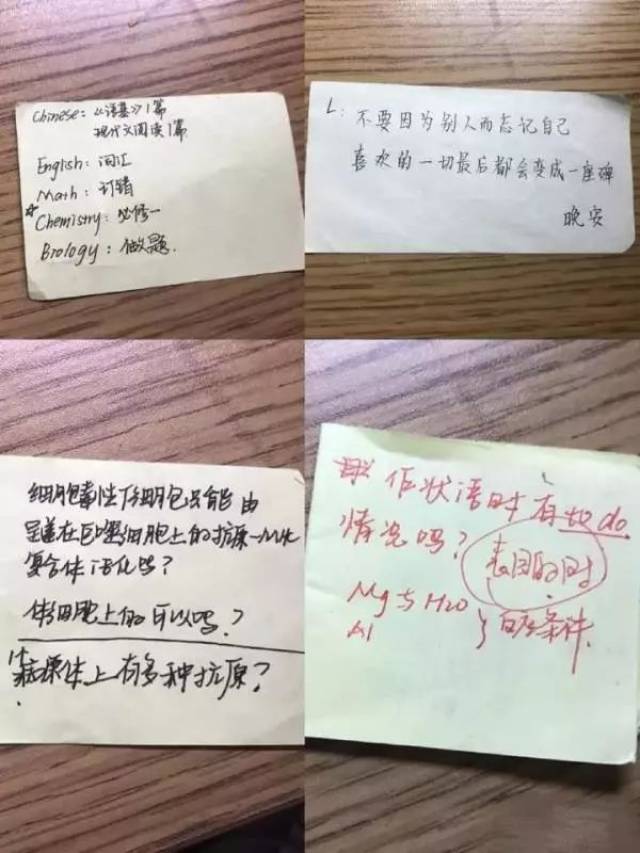 Chinese：《语基》1篇
现代文阅读1篇
English：词汇
Math：订错
☆Chemistry：必修一
Biology：做题.
L：不要因为别人而忘记自己
喜欢的一切最后都会变成一座碑
晚安
细胞毒性T细胞只能由
呈递在巨噬细胞上的抗原—MHC
复合体活化吗？
体细胞上的可以吗？
1个病原体上有多种抗原？
作状语时有to do
情况吗？
表目的时
Mg与H2O
Al
的条件